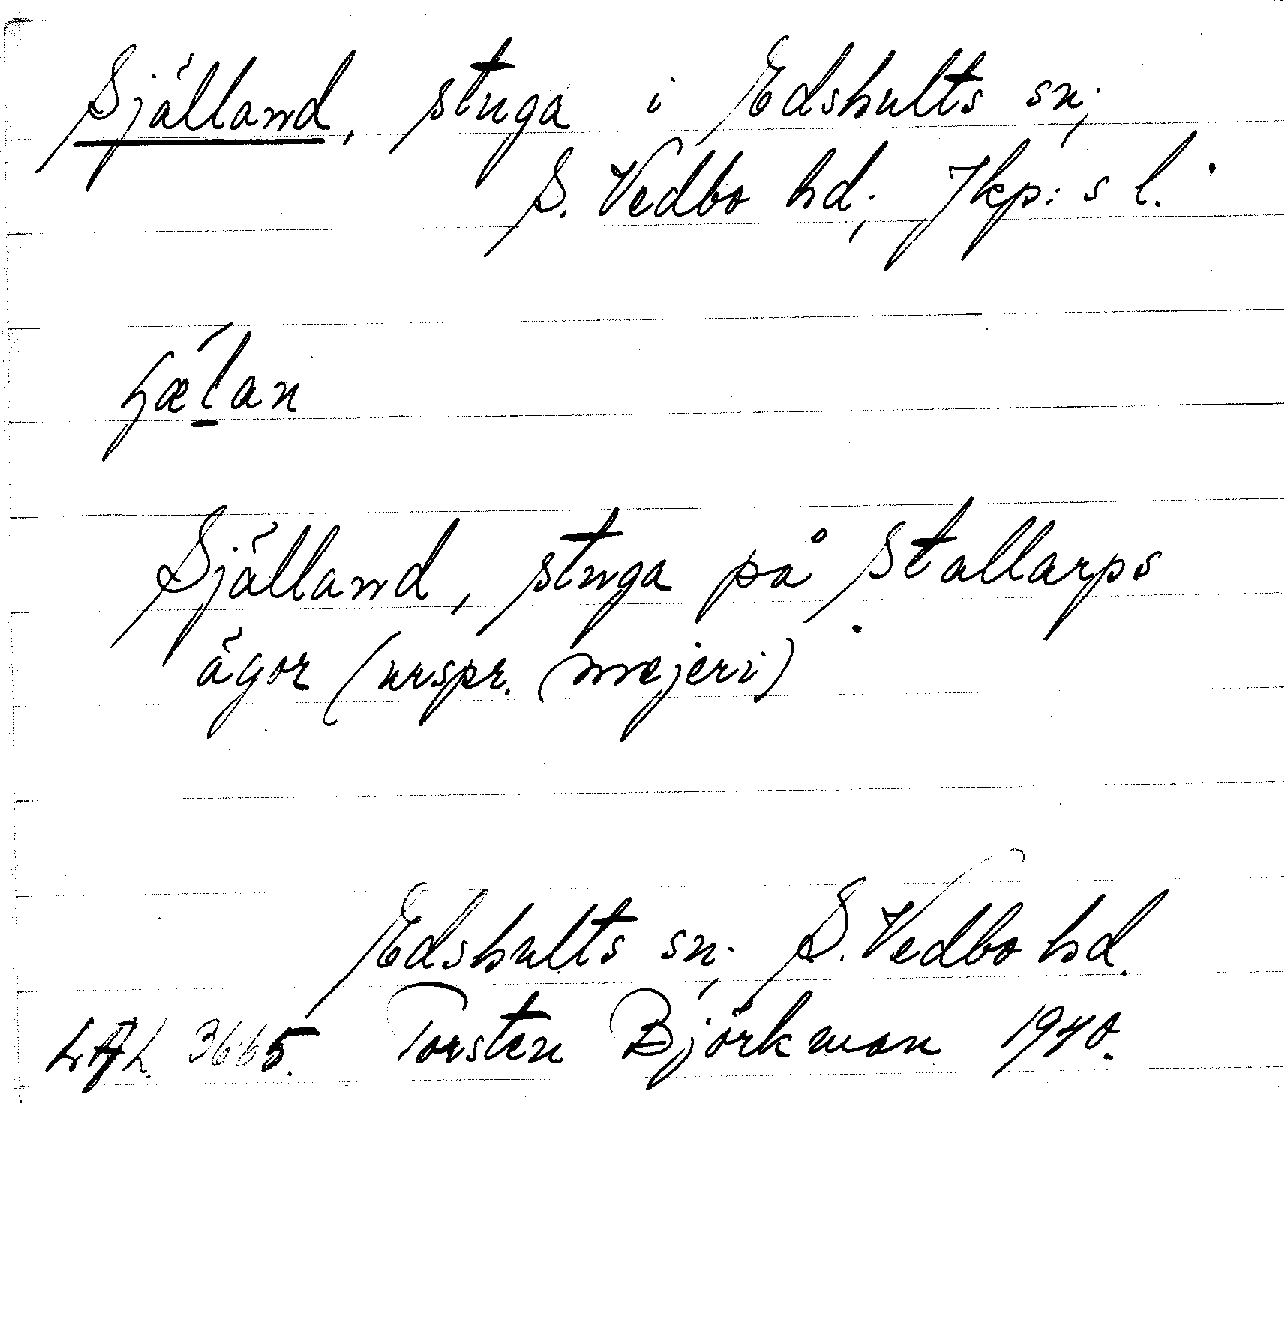 Själland, stuga i Edshults sn;
S. Vedbo hd; Jkp:s l.
ɧæ´l̲an
Själland, stuga på Stallarps
ägor (urspr. mejeri)
Edshults sn; S. Vedbo hd.
LAL. 3665. Torsten Björkman 1940.